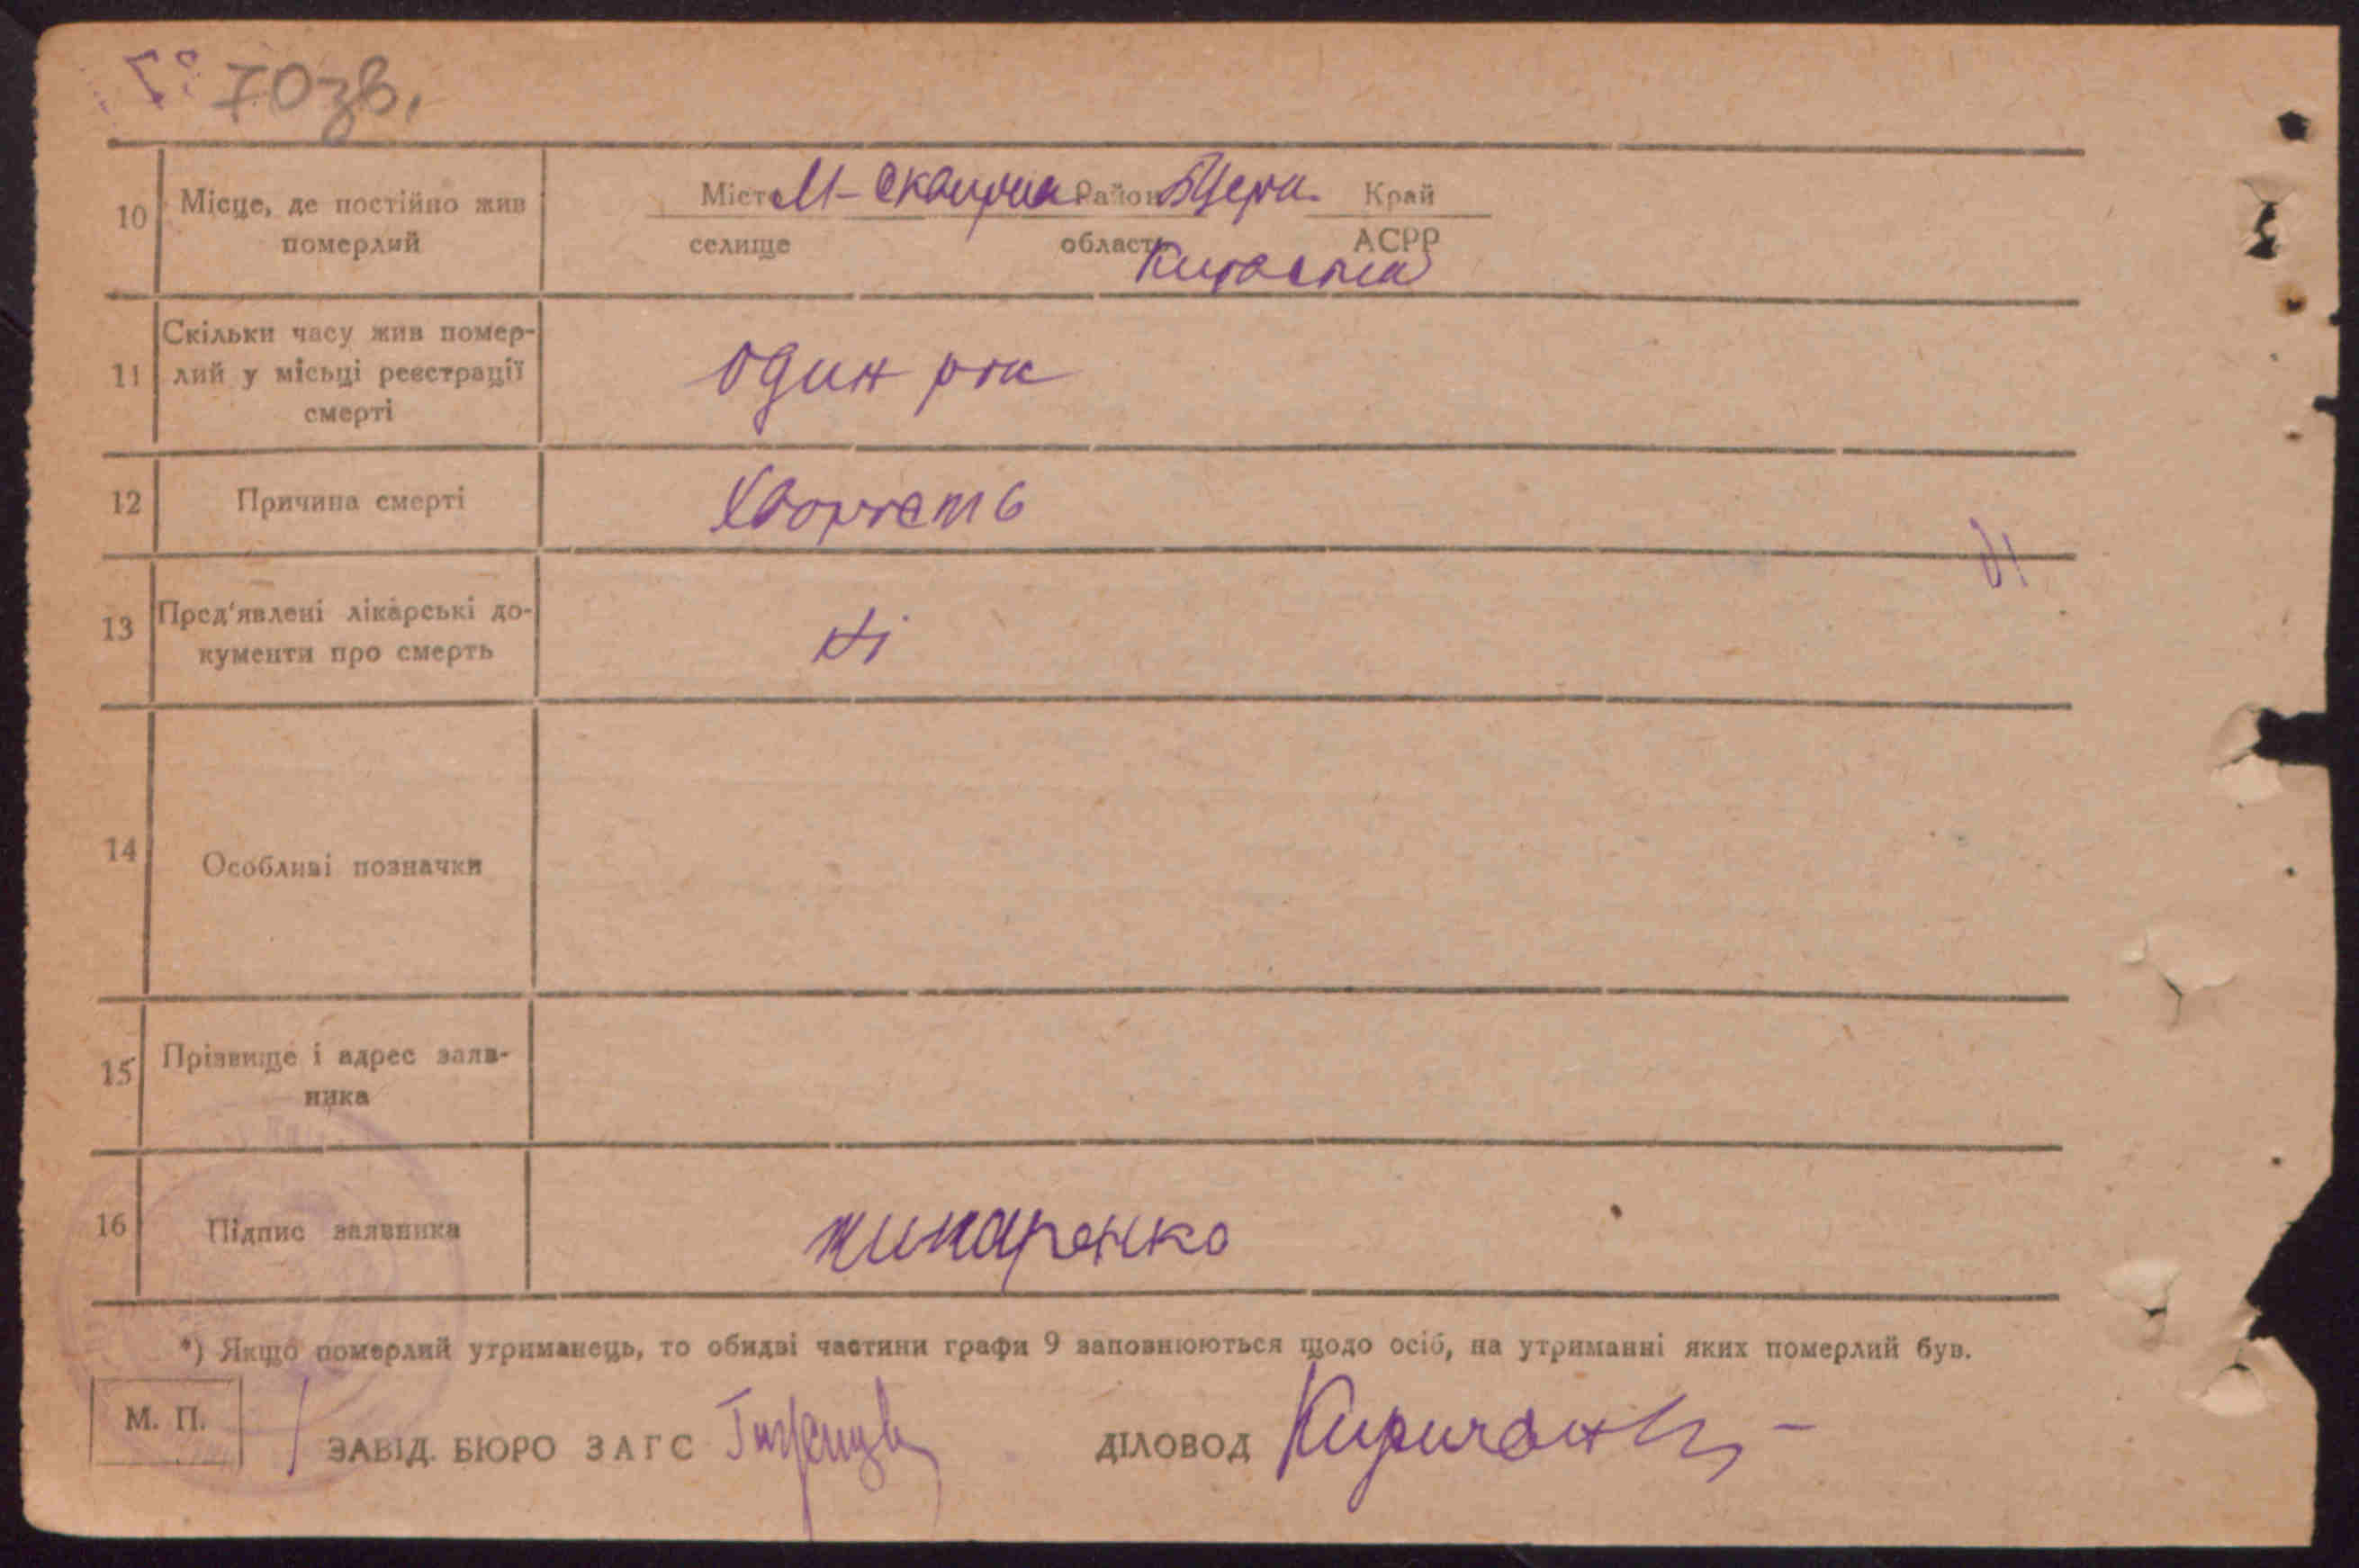 70зв.
10 Місце, де постійно жив померлий
Місто М-Сквирка Район БЦерк. Край
селище область Київська АСРР
11 Скільки часу жив помер-
лий у місьці реєстрації
смерті
один рік
12 Причина смерті
Хворость
13 Пред'явлені лікарські до-
кументи про смерть
Ні
14 Особливі позначки
15 Прізвище і адрес заяв-
ника
16 Підпис заявника
*) Якщо померлий утриманець, то обидві частини графи 9 заповнюються щодо осіб, на утриманні яких померлий був.
М. П.
ЗАВІД. БЮРО ЗАГС
ДІЛОВОД